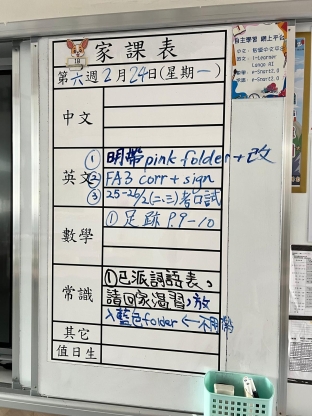 家課表
第六週2月24日(星期一)
中文
英文
① 明帶 pink folder + 改
② FA3 corr + sign
③ 25-26/2(二、三)考口試
數學
① 足跡 P9-10
常識
①已派詞語表，
請回家溫習，放
入藍色folder ←不用帶
其它
值日生
自主學習 網上平台